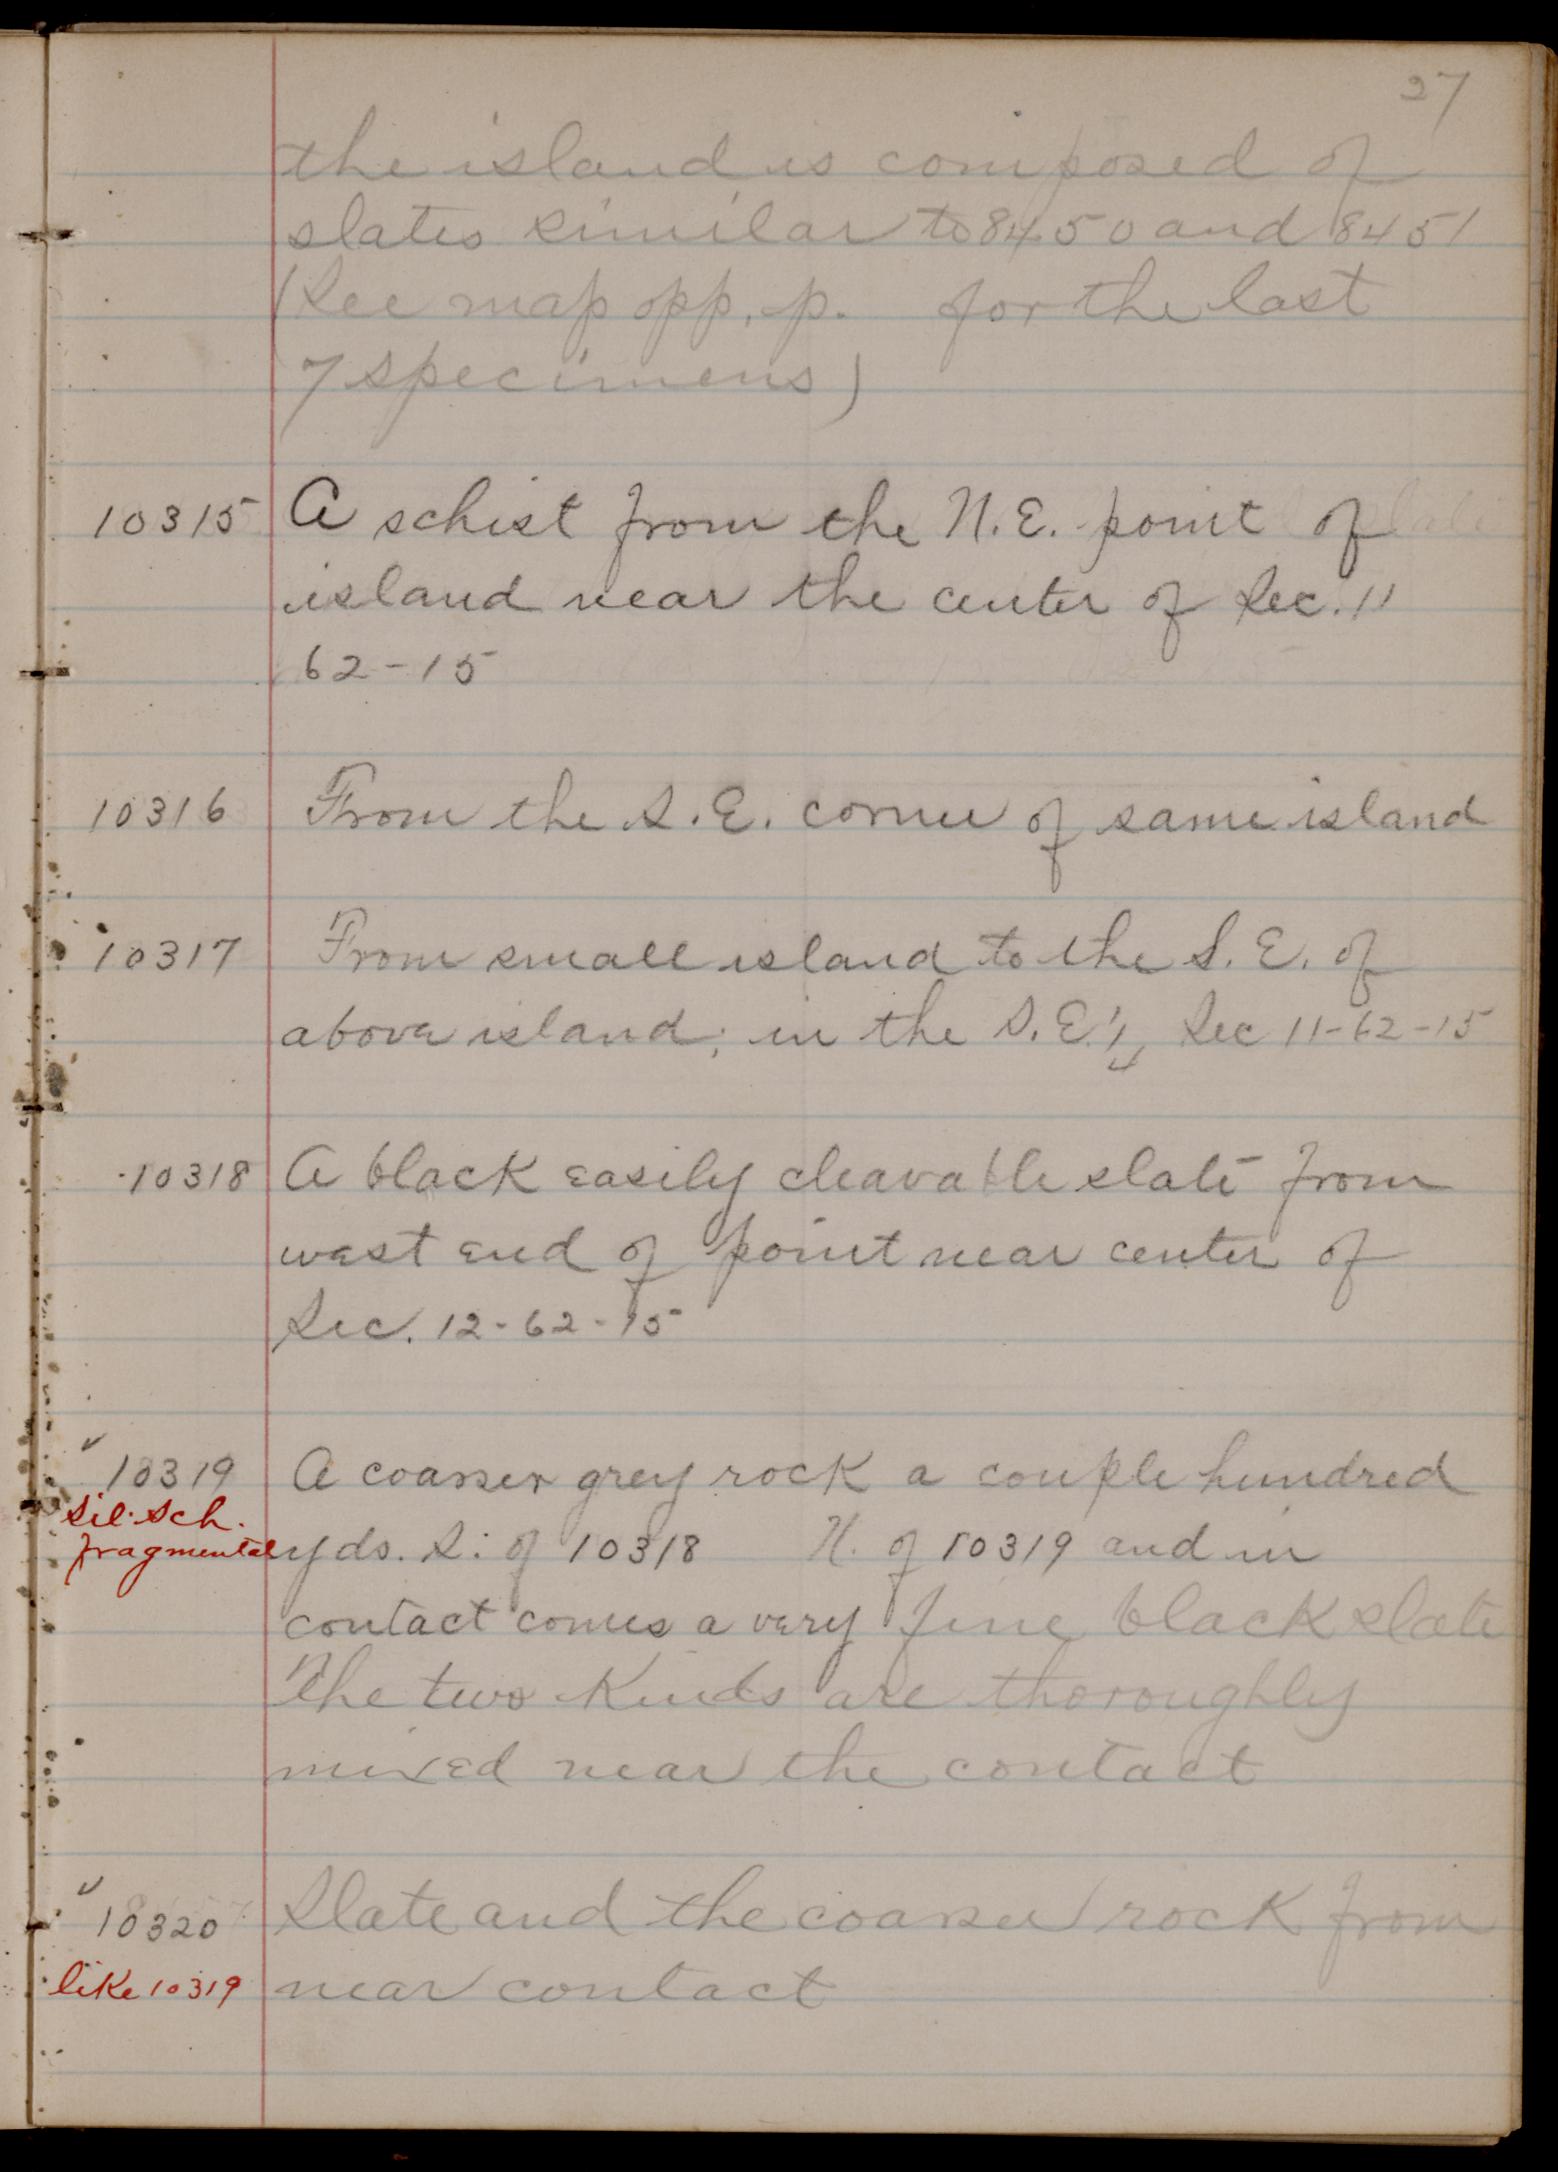 27
the island is composed of
slates similar to 8450 and 8451
(See map opp. p. for the last
7 specimens)
10315 A schist from the N.E. point of
island near the center of Sec. 11
62-15
10316 From the S.E. corner of same island
10317 From small island to the S.E. of
above island; in the S.E. 1/4 Sec 11-62-15
10318 A black easily cleavable slate from
west end of point near center of
Sec. 12-62-15
10319 A coarser grey rock a couple hundred
sil. sch.
fragmental yds. S. of 10318 N. of 10319 and in
contact comes a very fine black slate
The two kinds are thoroughly
mixed near the contact
10320 Slate and the coarser rock from
like 10319 near contact